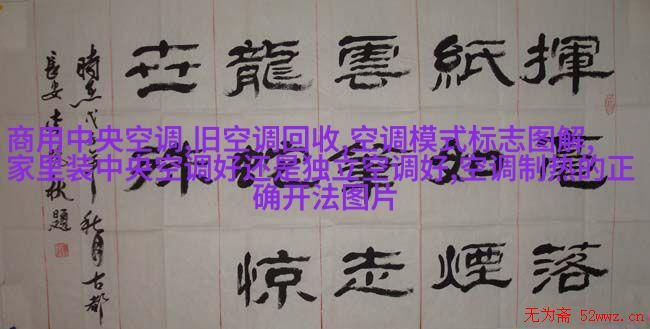 商用中央空调,旧空调回收,空调模式标志图解,
家里装中央空调好还是独立空调好,空调制热的正
确开法图片
揮毫落
紙如煙
雲筆走
龍蛇惊
世殊
時在戊子年秋月古都
長安題
无为斋 52wwz.cn